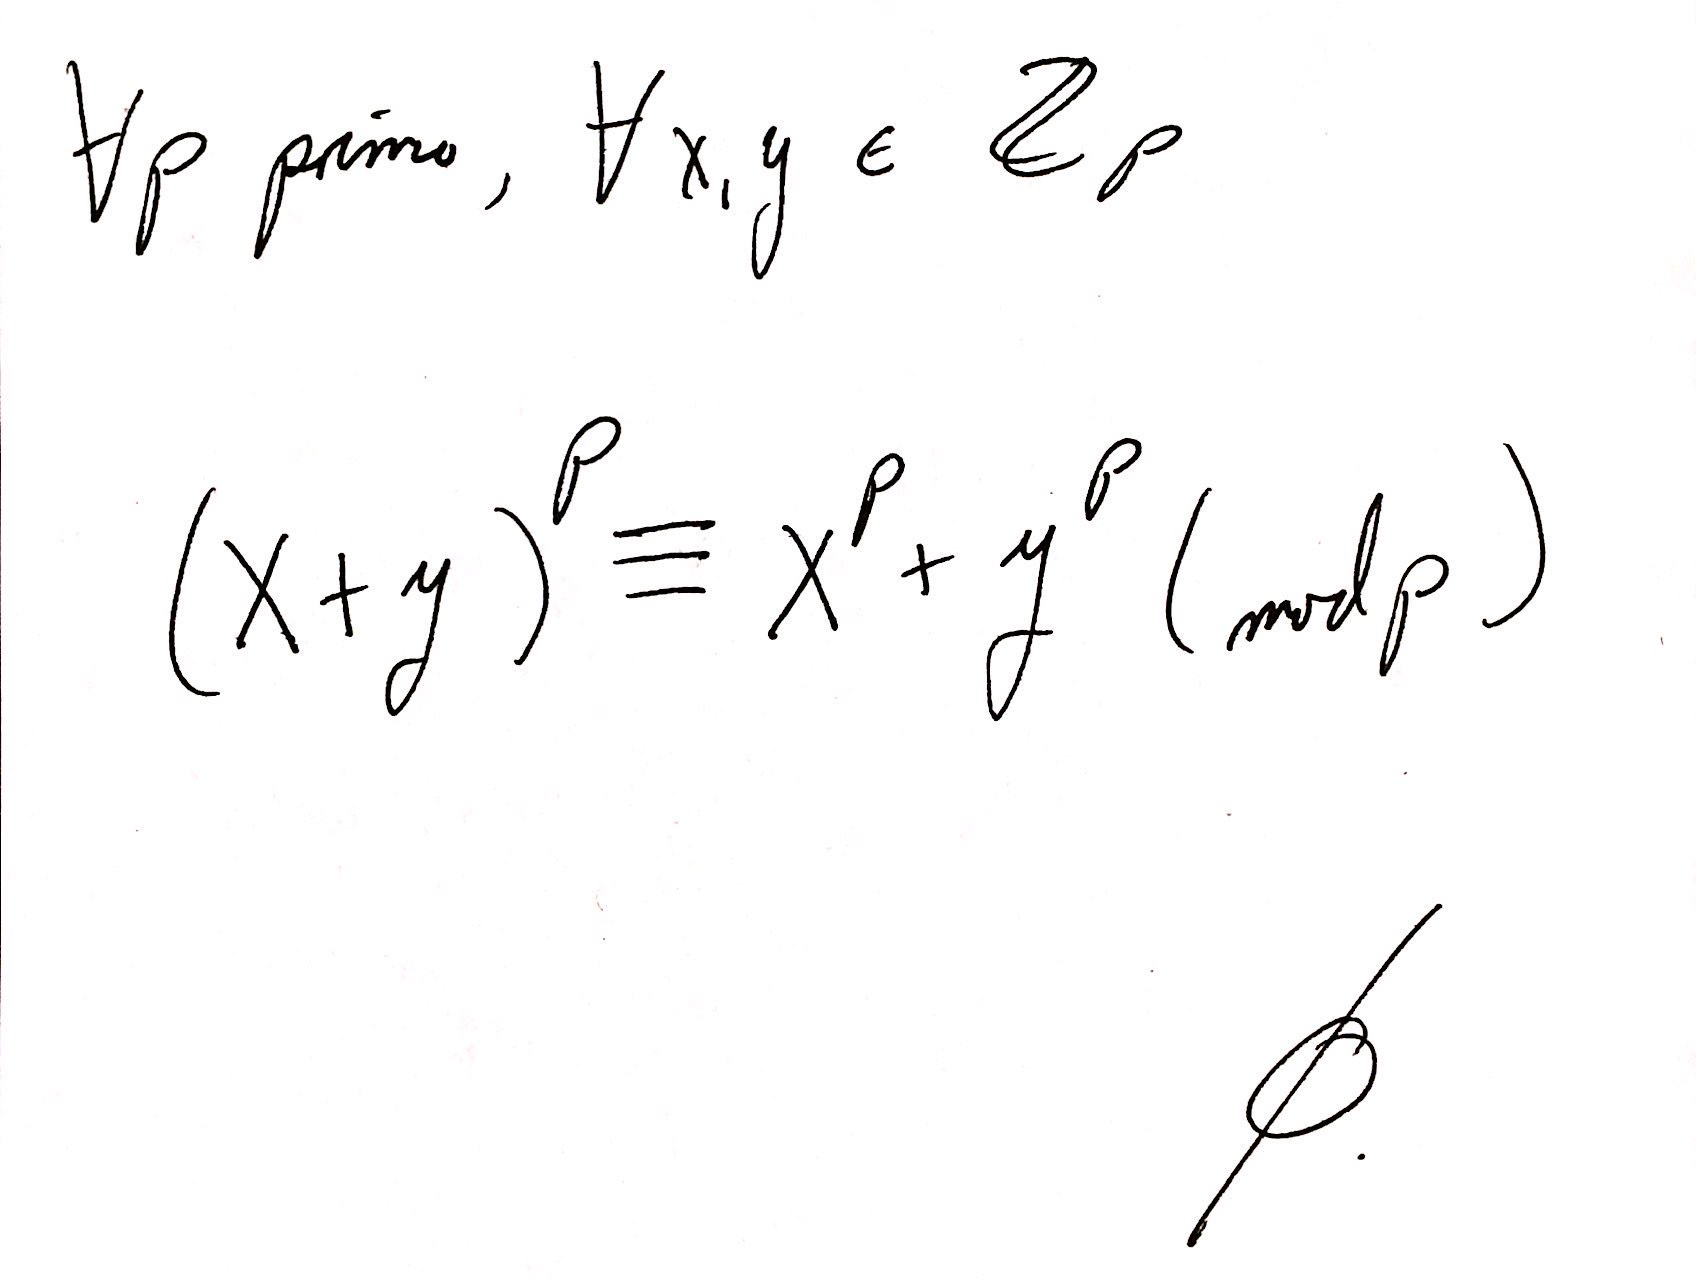 ∀p primo, ∀x, y ∈ ℤp
(x+y)^p ≡ x^p + y^p (mod p)
∅.